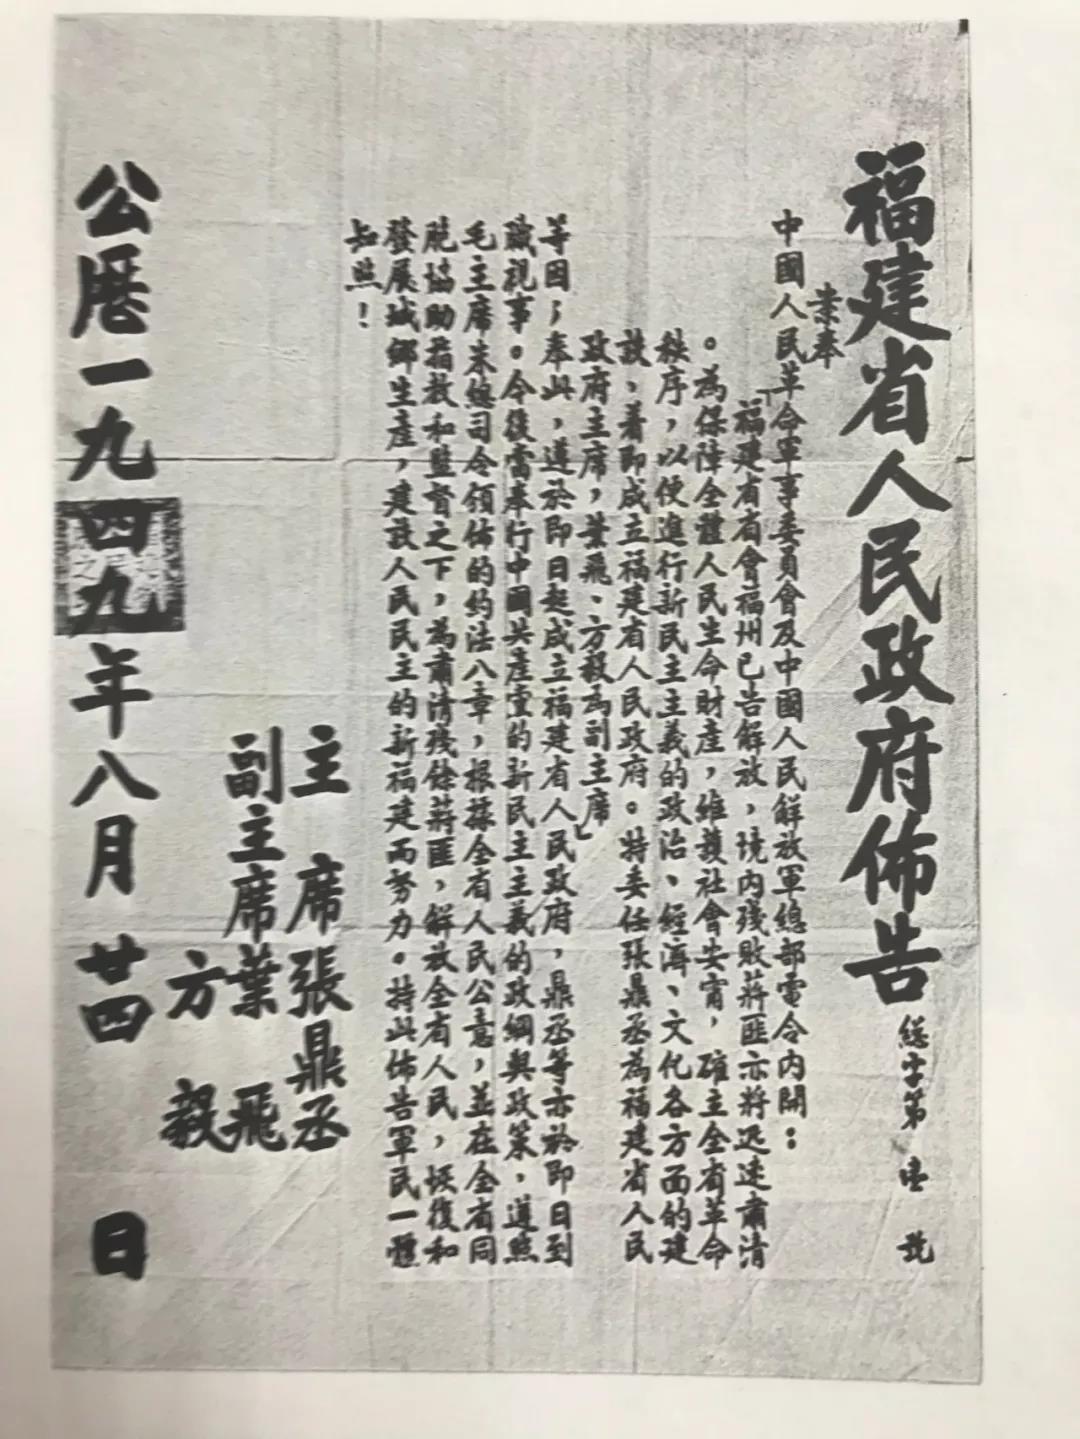 福建省人民政府佈告
總字第壹號
案奉
中國人民革命軍事委員會及中國人民解放軍總部電令內開：
「福建省省會福州已告解放，境內殘敗蔣匪亦將迅速肅清
。為保障全體人民生命財產，維護社會安甯，確主全省革命
秩序，以便進行新民主主義的政治、經濟、文化各方面的建
設，着即成立福建省人民政府。特委任張鼎丞為福建省人民
政府主席，葉飛、方毅為副主席」
等因；奉此，遵於即日起成立福建省人民政府，鼎丞等亦於即日到
職視事。今後當奉行中國共產黨的新民主主義的政綱與政策，遵照
毛主席朱總司令頒佈的約法八章，根據全省人民公意，並在全省同
胞協助指教和監督之下，為肅清殘餘蔣匪，解放全省人民，恢復和
發展城鄉生產，建設人民民主的新福建而努力。持此佈告軍民一體
知照！
主席張鼎丞
副主席葉飛
方毅
公曆一九四九年八月廿四日